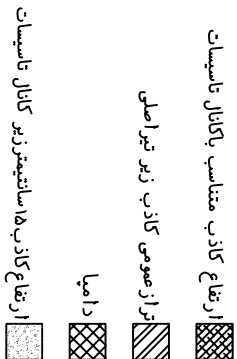 ارتفاع کاذب متناسب باکانال تاسیسات
تراز عمومی کاذب زیر تیراصلی
رامپا
ارتفاع کاذب ۱۵سانتیمتر زیر کانال تاسیسات